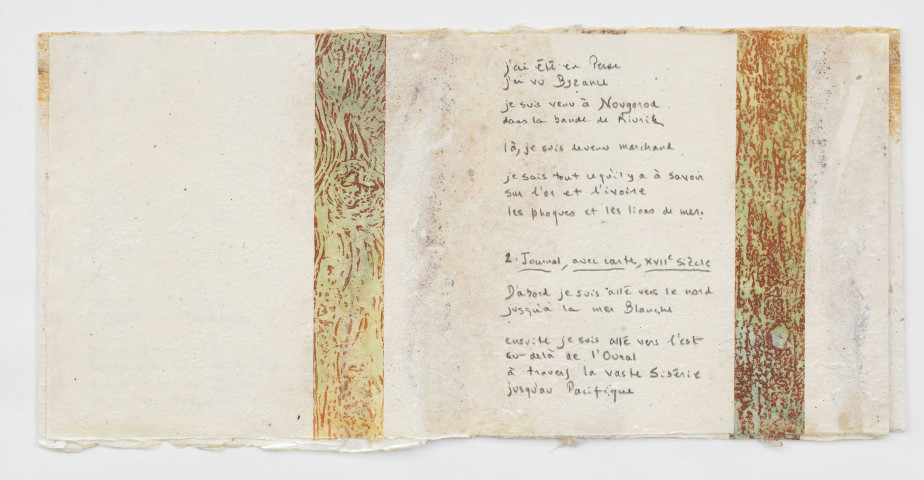 j'ai été en Perse
j'ai vu Byzance
je suis venu à Novgorod
dans la bande de Riurik
là, je suis devenu marchand
je sais tout ce qu'il y a à savoir
sur l'or et l'ivoire
les phoques et les lions de mer.
2. Journal, avec carte, XVIIe siècle
D'abord je suis allé vers le nord
jusqu'à la mer Blanche
ensuite je suis allé vers l'est
au-delà de l'Oural
à travers la vaste Sibérie
jusqu'au Pacifique